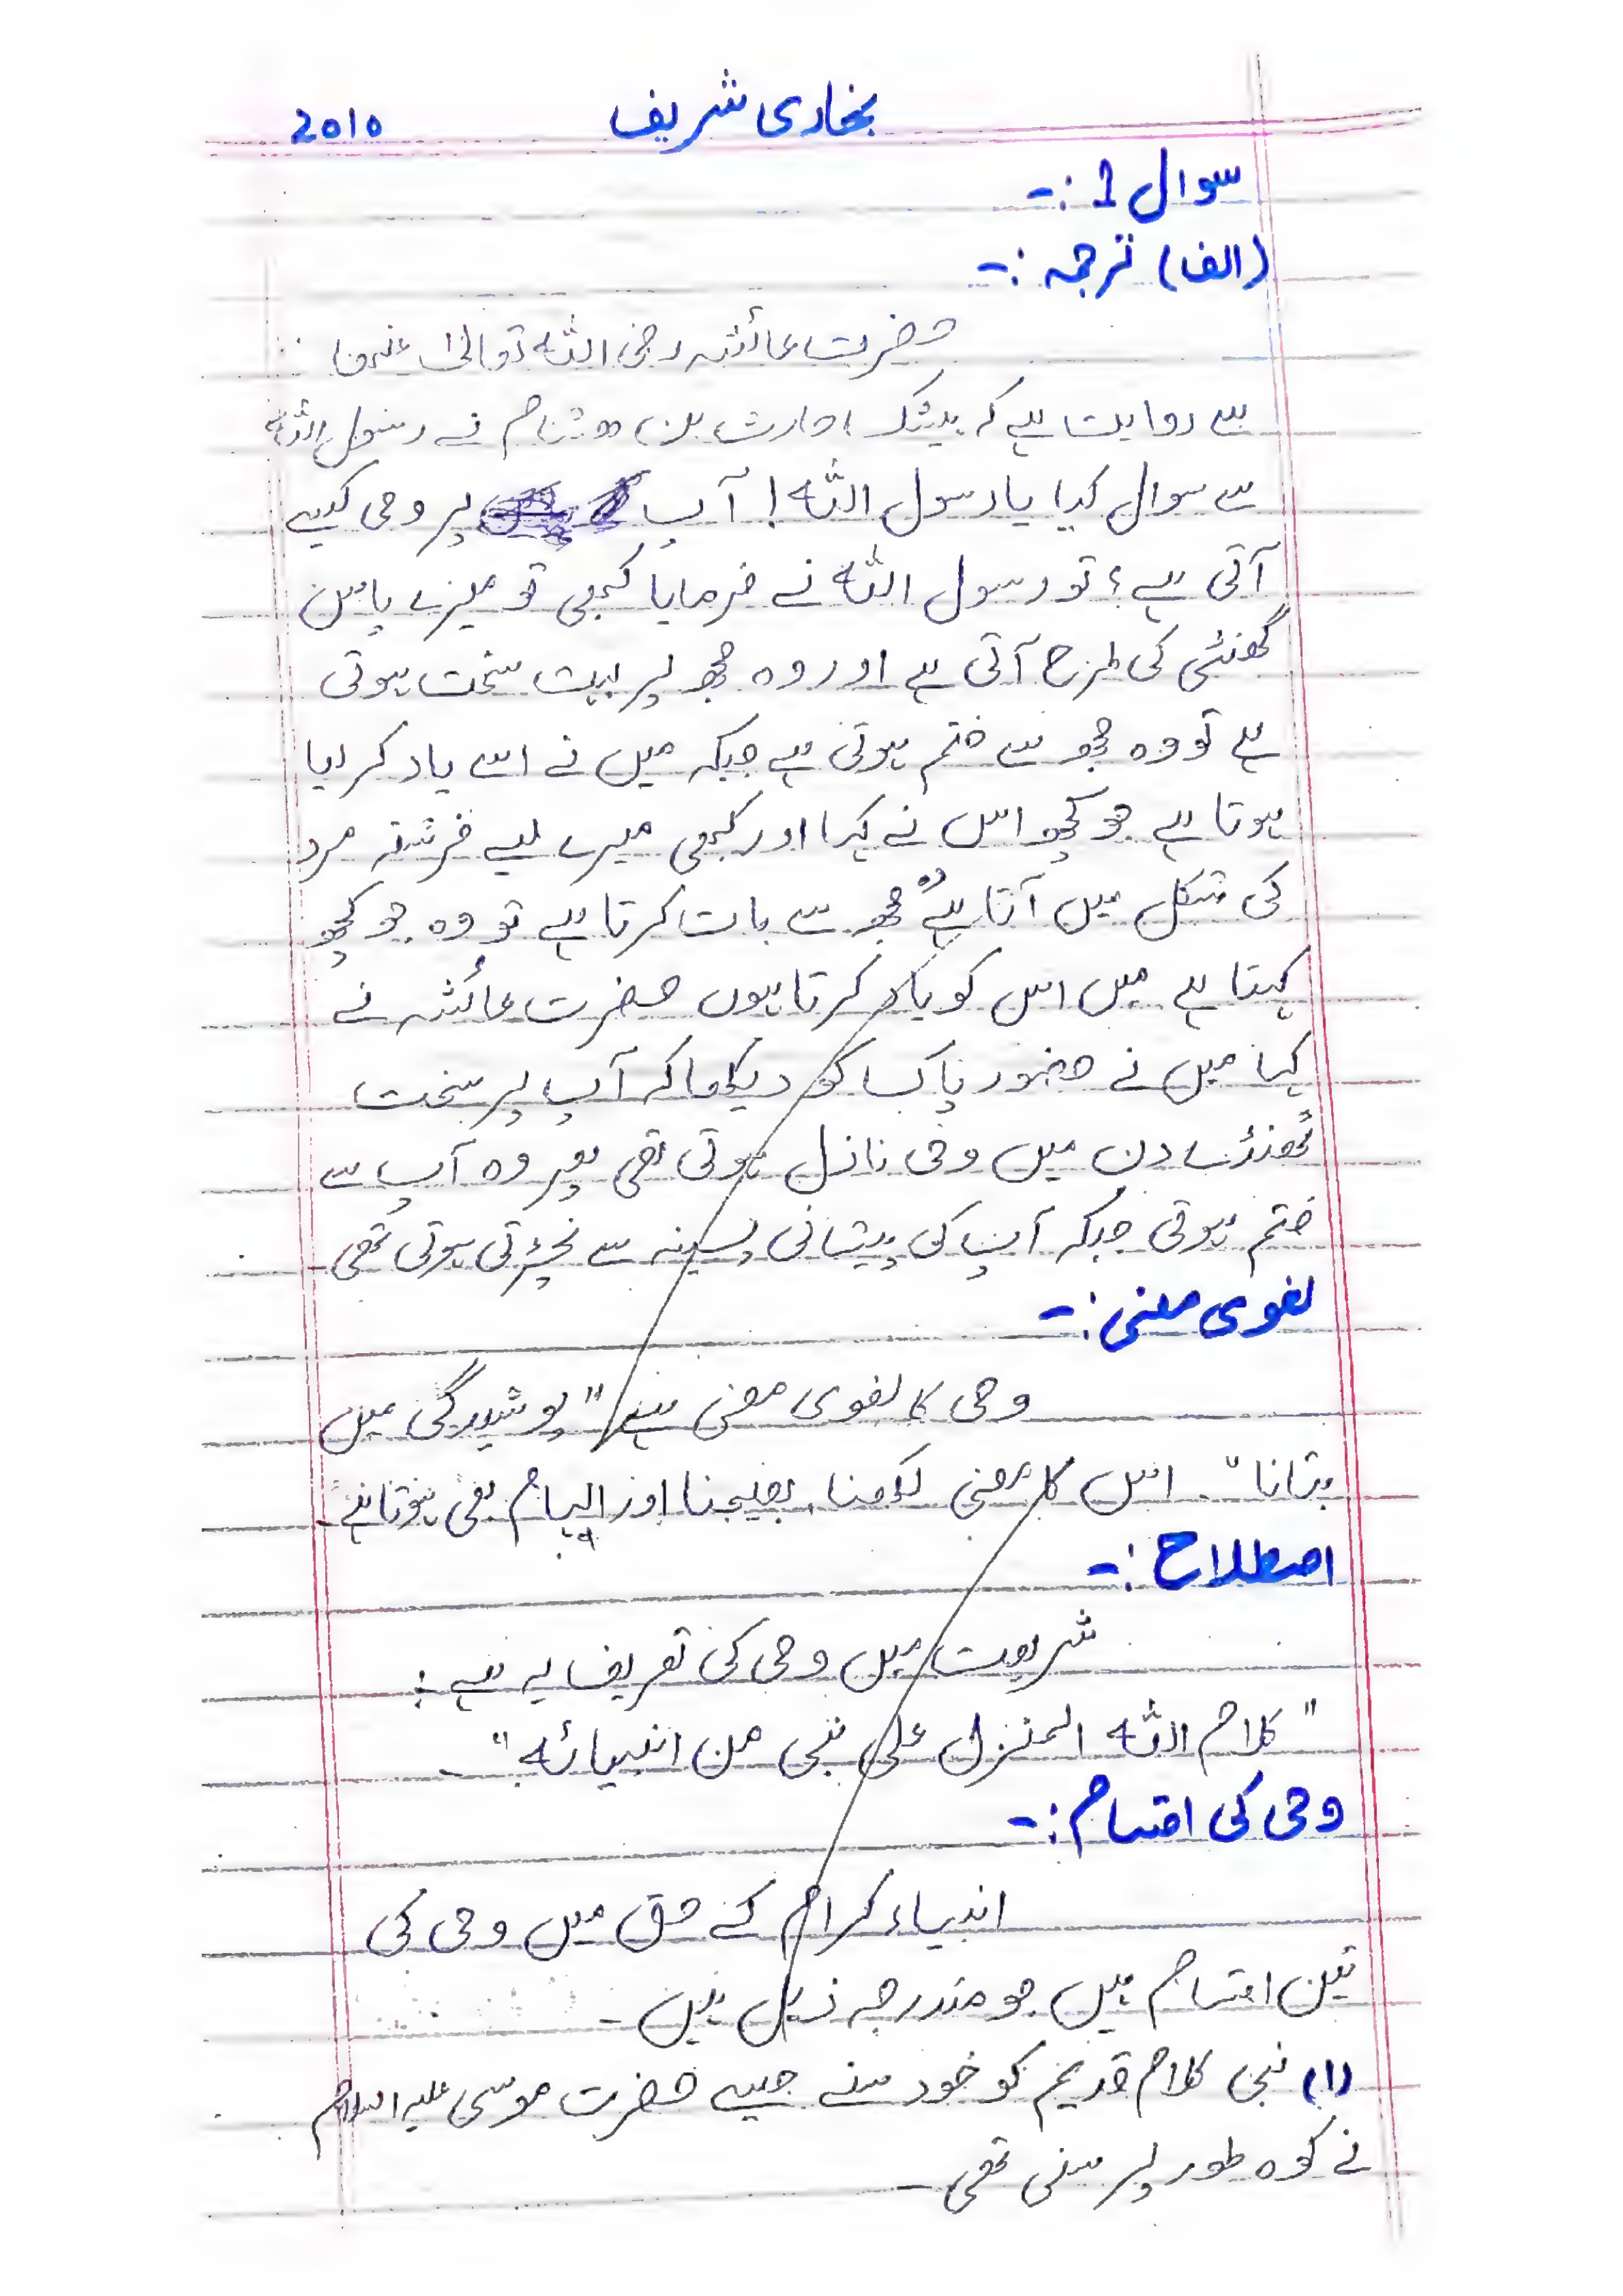 بخاری شریف 2010
سوال 1 :-
(الف) ترجمہ :-
حضرت عائشہ رضی اللہ تعالیٰ عنہا
سے روایت ہے کہ بیشک حارث بن ہشام نے رسول اللہ
سے سوال کیا یا رسول اللہ! آپ پر وحی کیسے
آتی ہے؟ تو رسول اللہ نے فرمایا کبھی تو میرے پاس
گھنٹی کی طرح آتی ہے اور وہ مجھ پر بہت سخت ہوتی
ہے تو وہ مجھ سے ختم ہوتی ہے جبکہ میں نے اسے یاد کر لیا
ہوتا ہے جو کچھ اس نے کہا اور کبھی میرے لیے فرشتہ مرد
کی شکل میں آتا ہے وہ مجھ سے بات کرتا ہے تو وہ جو کچھ
کہتا ہے میں اس کو یاد کرتا ہوں حضرت عائشہ نے
کہا میں نے حضور پاک کو دیکھا کہ آپ پر سخت
ٹھنڈے دن میں وحی نازل ہوتی تھی پھر وہ آپ سے
ختم ہوتی جبکہ آپ کی پیشانی پسینہ سے نچڑتی ہوتی تھی۔
لغوی معنی :-
وحی کا لغوی معنی ہے "پوشیدگی میں
بتانا"۔ اس کا معنی لکھنا، بھیجنا اور الہام بھی ہوتا ہے۔
اصطلاح :-
شریعت میں وحی کی تعریف یہ ہے :
"کلام اللہ المنزل علی نبی من انبیائہ"۔
وحی کی اقسام :-
انبیاء کرام کے حق میں وحی کی
تین اقسام ہیں جو مندرجہ ذیل ہیں۔
(۱) نبی کلام قدیم کو خود سنے جیسے حضرت موسی علیہ السلام
نے کوہ طور پر سنی تھی۔